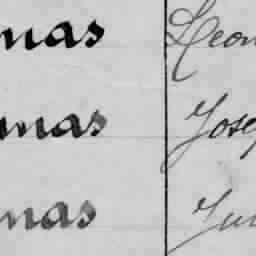 mas Leon
mas Jose
mas Ju